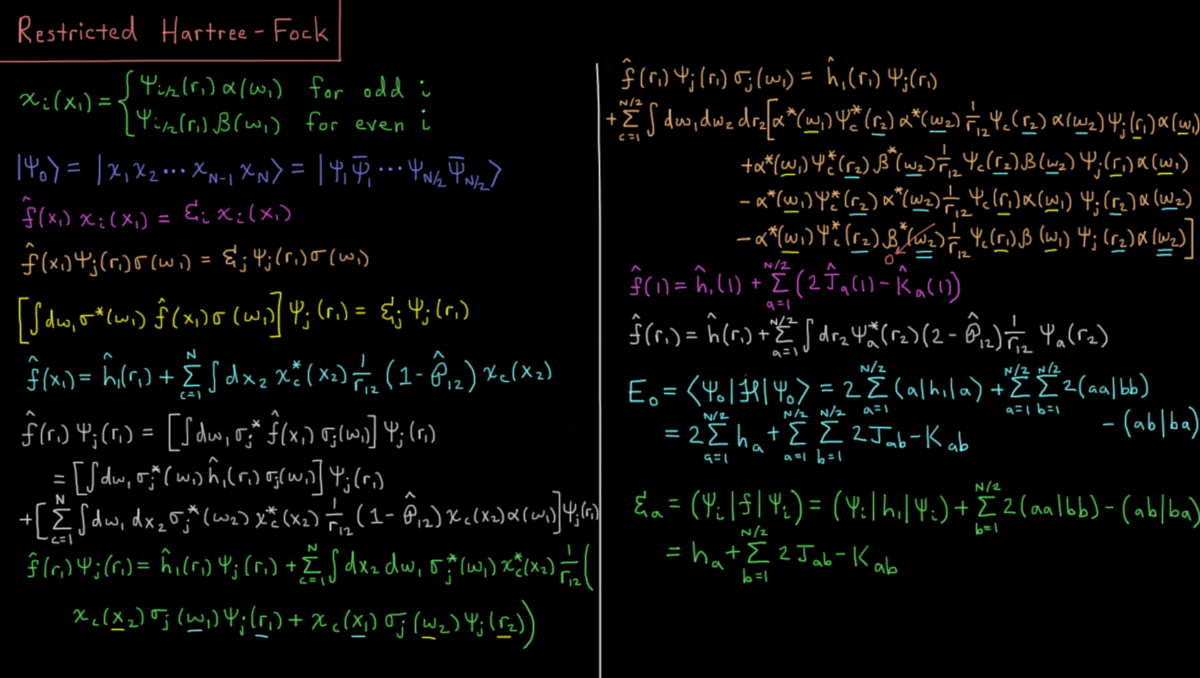 Restricted Hartree-Fock
χᵢ(x₁) = { Ψᵢ/₂(r₁) α(ω₁) for odd i
Ψᵢ/₂(r₁) β(ω₁) for even i
|Ψ₀⟩ = |χ₁χ₂⋯χ_{N-1} χ_N⟩ = |Ψ₁Ψ̄₁⋯Ψ_{N/2}Ψ̄_{N/2}⟩
f̂(x₁) χᵢ(x₁) = Ɛᵢ χᵢ(x₁)
f̂(x₁)Ψⱼ(r₁)σ(ω₁) = Ɛⱼ Ψⱼ(r₁)σ(ω₁)
[∫dω₁ σ*(ω₁) f̂(x₁)σ(ω₁)] Ψⱼ(r₁) = Ɛⱼ Ψⱼ(r₁)
f̂(x₁) = ĥ₁(r₁) + Σ_{c=1}^{N} ∫dx₂ χ_c*(x₂) 1/r₁₂ (1-𝒫̂₁₂) χ_c(x₂)
f̂(r₁) Ψⱼ(r₁) = [∫dω₁ σⱼ* f̂(x₁) σⱼ(ω₁)] Ψⱼ(r₁)
= [∫dω₁ σⱼ*(ω₁) ĥ₁(r₁) σⱼ(ω₁)] Ψⱼ(r₁)
+ [Σ_{c=1}^{N} ∫dω₁ dx₂ σⱼ*(ω₂) χ_c*(x₂) 1/r₁₂ (1-𝒫̂₁₂) χ_c(x₂) α(ω₁)] Ψⱼ(r₁)
f̂(r₁)Ψⱼ(r₁) = ĥ₁(r₁) Ψⱼ(r₁) + Σ_{c=1}^{N} ∫dx₂ dω₁ σⱼ*(ω₁) χ_c*(x₂) 1/r₁₂ (
χ_c(x₂) σⱼ(ω₁) Ψⱼ(r₁) + χ_c(x₁) σⱼ(ω₂) Ψⱼ(r₂))
f̂(r₁) Ψⱼ(r₁) σⱼ(ω₁) = ĥ₁(r₁) Ψⱼ(r₁)
+ Σ_{c=1}^{N/2} ∫dω₁dω₂ dr₂ [α*(ω₁) Ψ_c*(r₂) α*(ω₂) 1/r₁₂ Ψ_c(r₂) α(ω₂) Ψⱼ(r₁) α(ω₁)
+α*(ω₁) Ψ_c*(r₂) β*(ω₂) 1/r₁₂ Ψ_c(r₂) β(ω₂) Ψⱼ(r₁) α(ω₁)
- α*(ω₁) Ψ_c*(r₂) α*(ω₂) 1/r₁₂ Ψ_c(r₁) α(ω₁) Ψⱼ(r₂) α(ω₂)
- α*(ω₁) Ψ_c*(r₂) β*(ω₂) 1/r₁₂ Ψ_c(r₁) β(ω₁) Ψⱼ(r₂) α(ω₂)]
0
f̂(1) = ĥ₁(1) + Σ_{a=1}^{N/2} (2Ĵ_a(1) - K̂_a(1))
f̂(r₁) = ĥ(r₁) + Σ_{a=1}^{N/2} ∫dr₂ Ψ_a*(r₂) (2 - 𝒫̂₁₂) 1/r₁₂ Ψ_a(r₂)
E₀ = ⟨Ψ₀|ℋ|Ψ₀⟩ = 2 Σ_{a=1}^{N/2} (a|h₁|a) + Σ_{a=1}^{N/2} Σ_{b=1}^{N/2} 2(aa|bb) - (ab|ba)
= 2 Σ_{a=1}^{N/2} h_a + Σ_{a=1}^{N/2} Σ_{b=1}^{N/2} 2J_{ab} - K_{ab}
Ɛ_a = (Ψᵢ|f|Ψᵢ) = (Ψᵢ|h₁|Ψᵢ) + Σ_{b=1}^{N/2} 2(aa|bb) - (ab|ba)
= h_a + Σ_{b=1}^{N/2} 2J_{ab} - K_{ab}